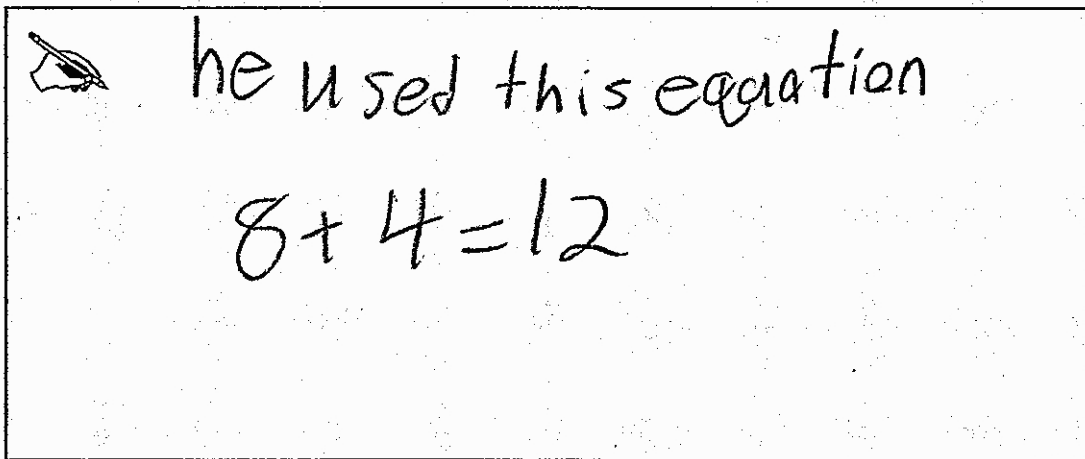 he used this equation
8+4=12